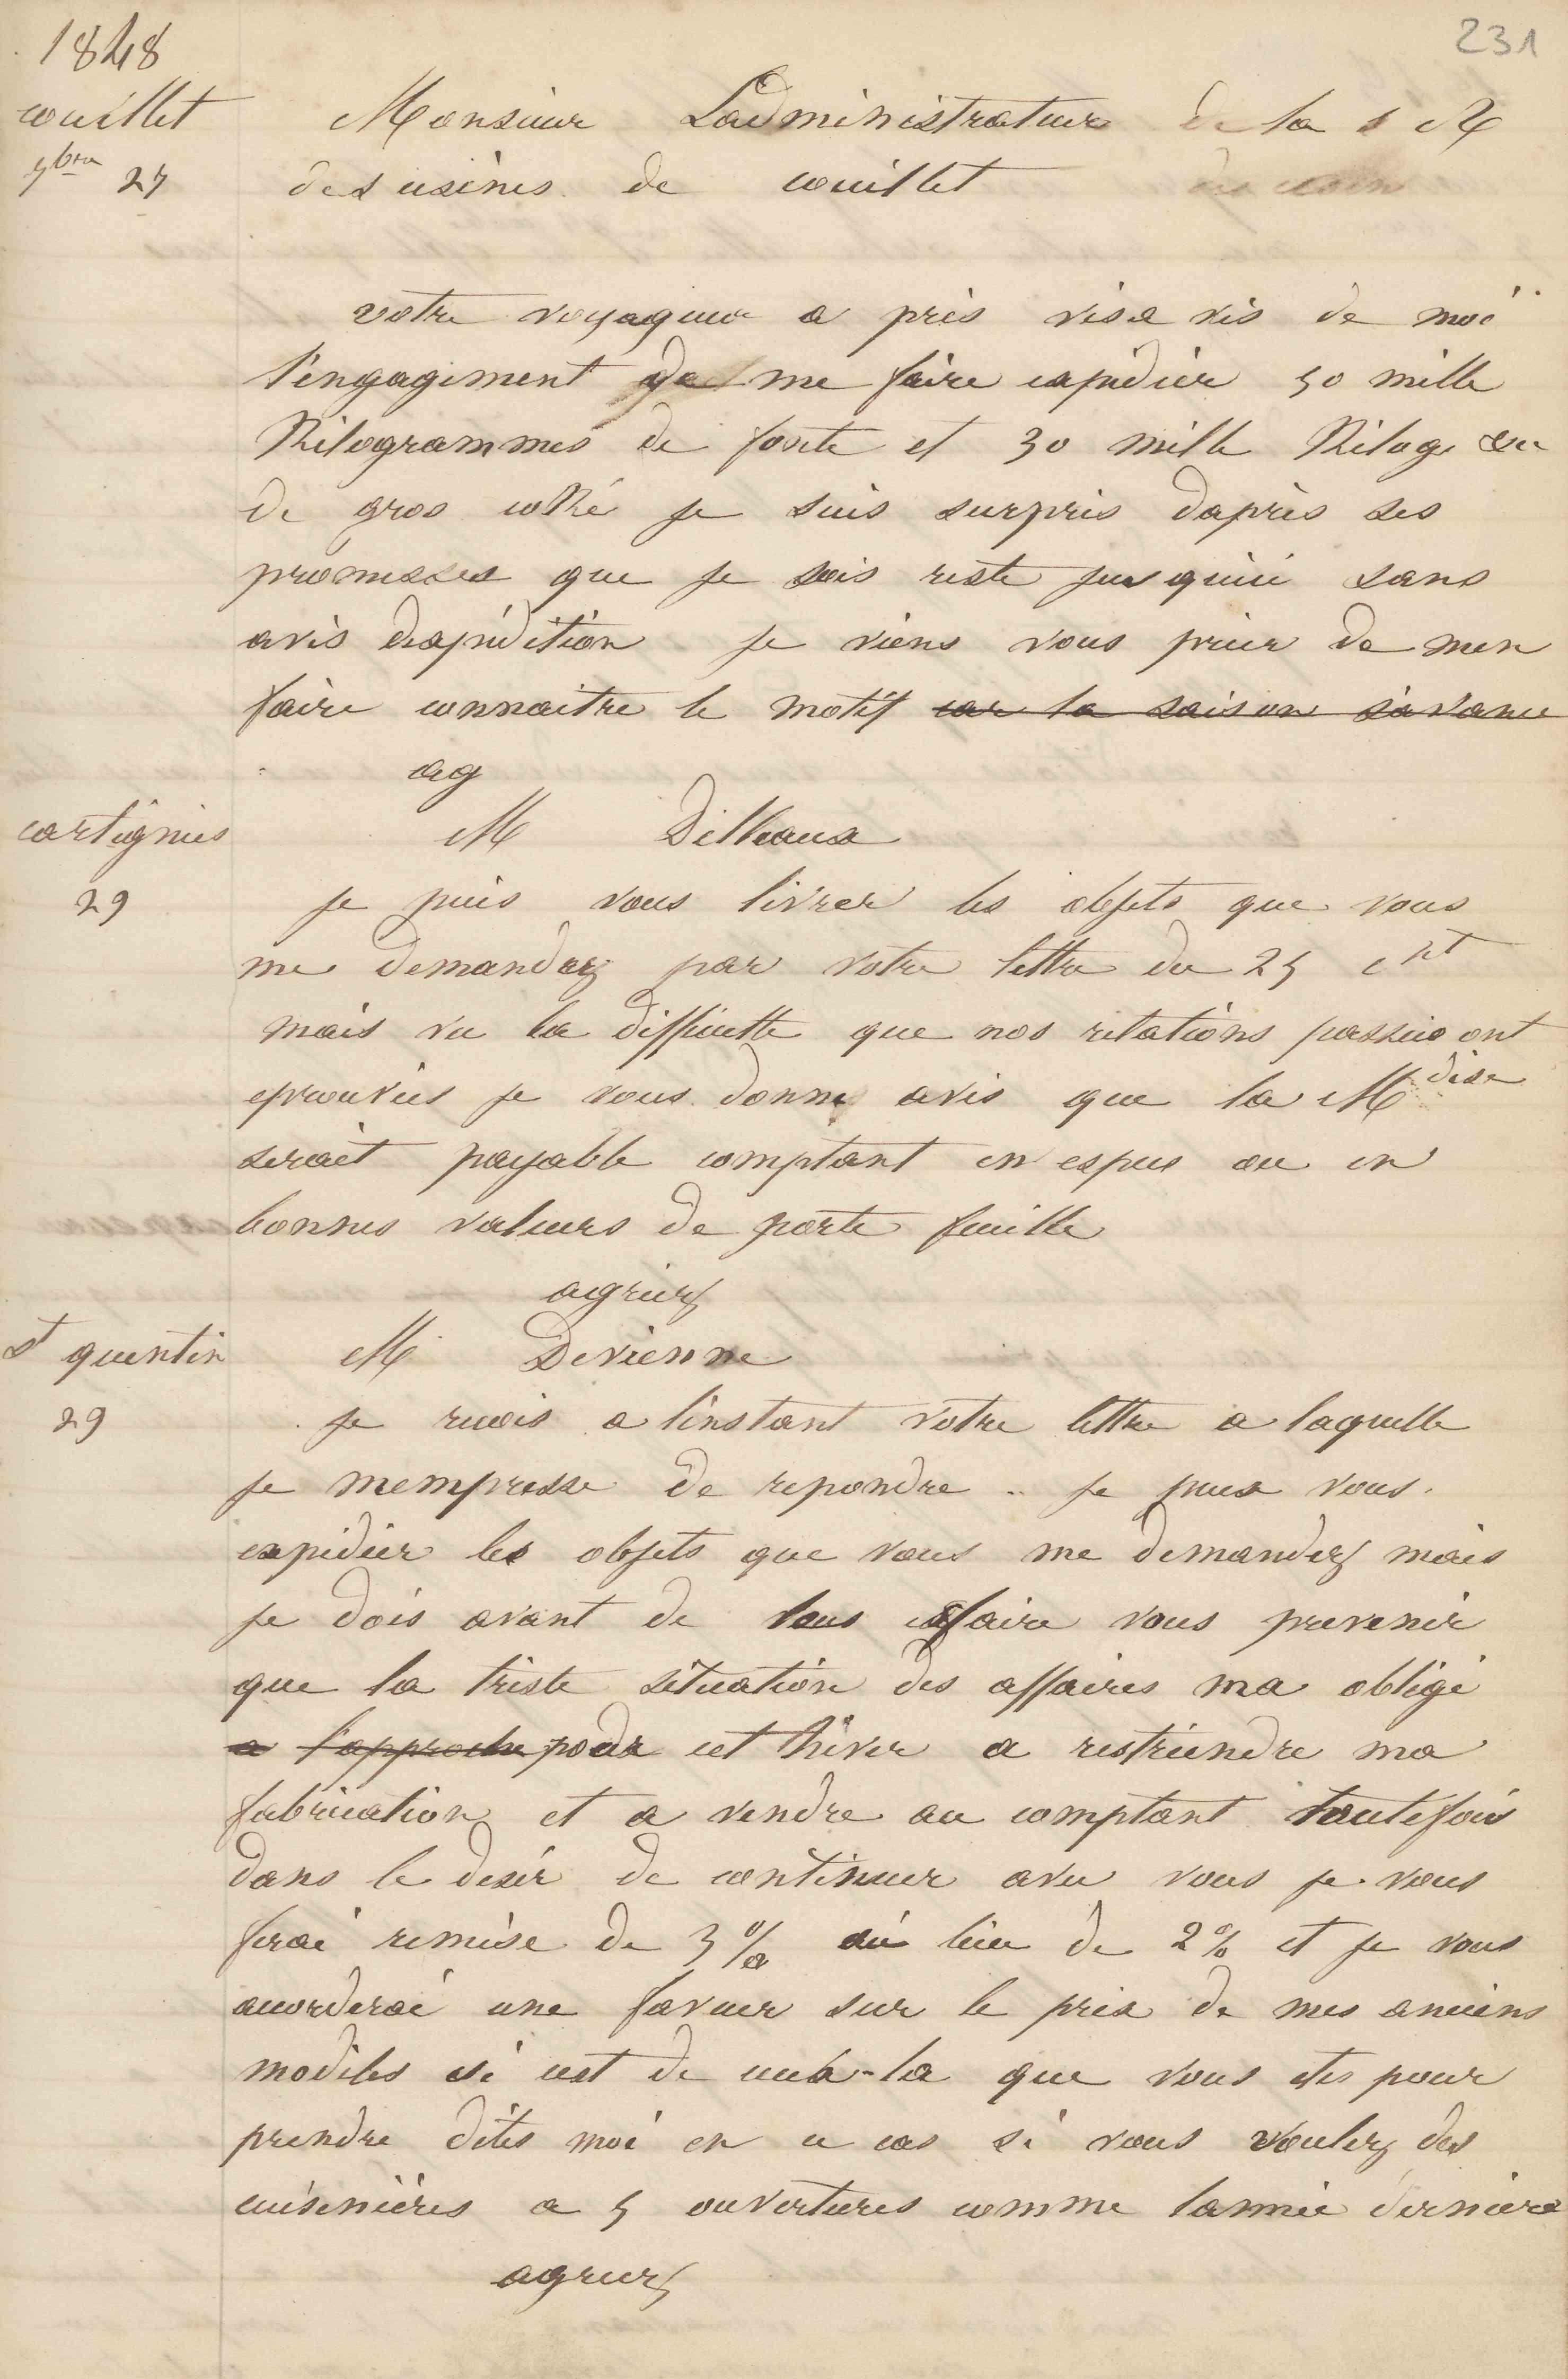 231
1848
couillet
7bre 27
Monsieur Ladministrateur de la s M
des usines de couillet
votre voyageur a pris vis a vis de moi
l'engagement de me faire expedier 50 mille
Kilogrammes de fonte et 30 mille Kilog ou
de gros coké je suis surpris daprès ses
promesses que je sois resté jusquici sans
avis dexpédition je viens vous prier de men
faire connaitre le motif car la saison s'avance
ag
cartignies
29
M Delbaux
je puis vous livrer les objets que vous
me demandez par votre lettre du 25 cnt
mais vu la difficulté que nos relations passées ont
eprouvées je vous donne avis que la Mdise
serait payable comptant en espèces ou en
bonnes valeurs de porte feuille
agréez
st quentin
29
M Devienne
je reçois a linstant votre lettre a laquelle
je mempresse de repondre .. je peux vous
expédier les objets que vous me demandez mais
je dois avant de faire vous prevenir
que la triste situation des affaires ma obligé
a l'approche pour cet hiver a restreindre ma
fabrication et a vendre au comptant toutefois
dans le desir de continuer avec vous je vous
ferai remise de 3 % au lieu de 2 % et je vous
accorderai une faveur sur le prix de mes anciens
modèles si cest de ceux-la que vous etes pour
prendre dites moi en ce cas si vous voulez des
cuisinières a 5 ouvertures comme lannée dernière
agréez